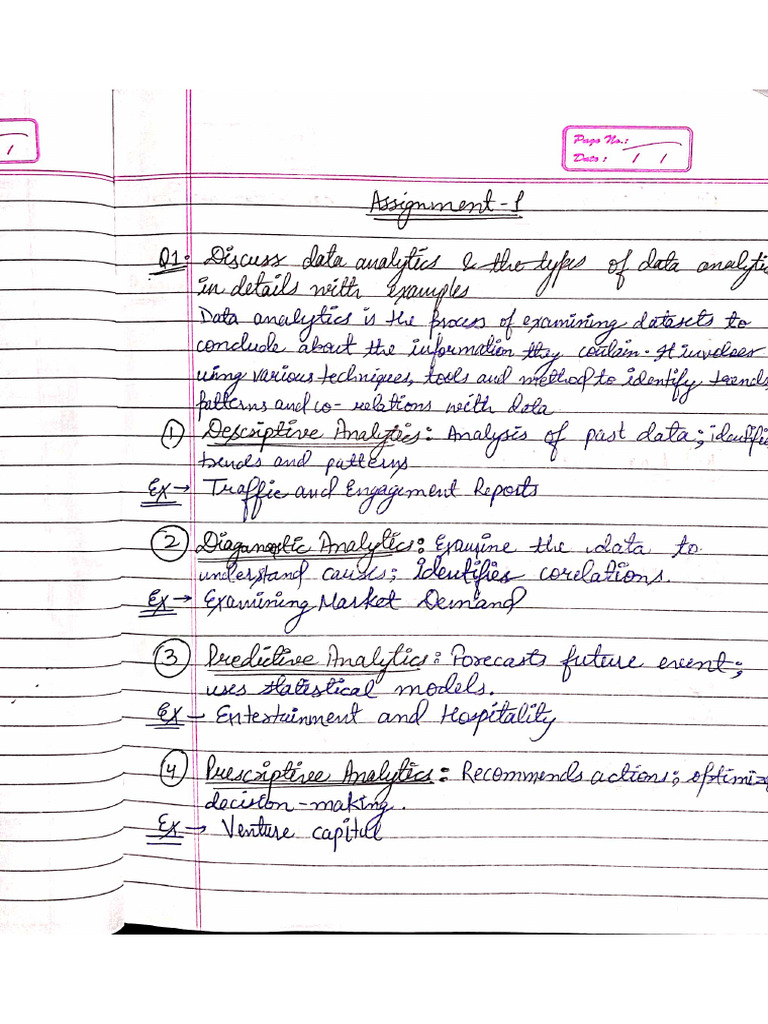 Page No.:
Date : / /
Assignment-1
Q1: Discuss data analytics & the types of data analytic
in details with examples
Data analytics is the process of examining datasets to
conclude about the information they contain. It involves
using various techniques, tools and method to identify trends
patterns and co-relations with data
① Descriptive Analytics: Analysis of past data; identifie
trends and patterns
Ex → Traffic and Engagement Reports
② Diaganostic Analytics: Examine the data to
understand causes; identifies corelations.
Ex → Examining Market Demand
③ Predictive Analytics: Forecasts future event;
uses statistical models.
Ex - Entertainment and Hospitality
④ Prescriptive Analytics: Recommends actions; optimize
decision-making.
Ex → Venture capital